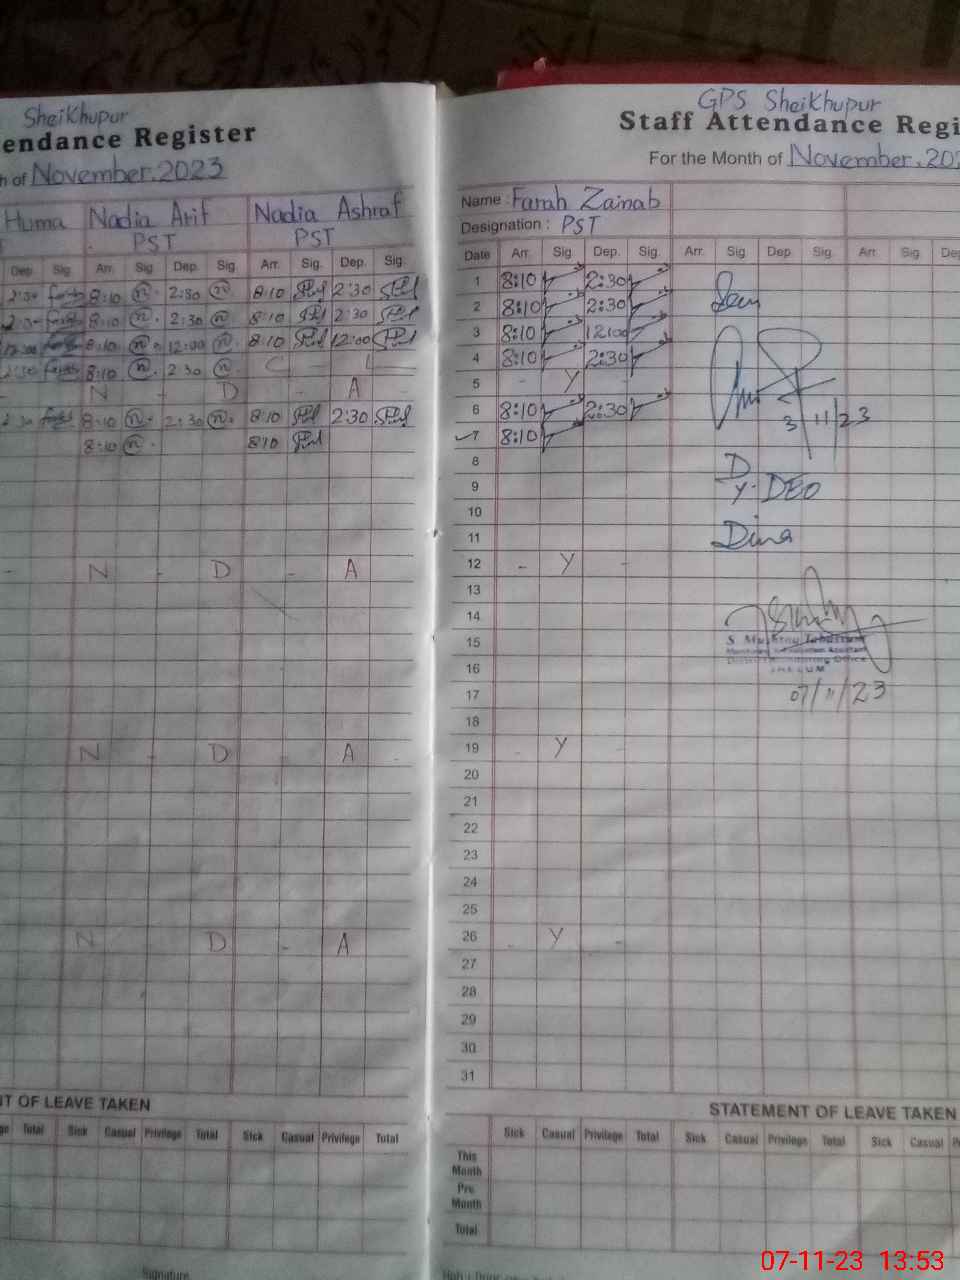 Sheikhupur
endance Register
h of November.2023
Huma Nadia Arif Nadia Ashraf
PST PST
Dep. Sig. Arr. Sig. Dep. Sig. Arr. Sig. Dep. Sig.
2:30 8:10 n 2:30 n 8:10 2:30
2:30 8:10 n 2:30 n 8:10 2:30
12:00 8:10 n 12:00 n 8:10 12:00
2:30 8:10 n 2:30 n C - L -
- N - D - A -
2:30 8:10 n 2:30 n 8:10 2:30
8:10 n 8:10
- N - D - A
N - D - A -
N - D - A
NT OF LEAVE TAKEN
ge Total Sick Casual Privilege Total Sick Casual Privilege Total
Signature
GPS Sheikhupur
Staff Attendance Regi
For the Month of November.202
Name : Farah Zainab
Designation : PST
Date Arr. Sig. Dep. Sig. Arr. Sig. Dep. Sig. Arr. Sig. Dep
1 8:10 2:30
2 8:10 2:30
3 8:10 12:00
4 8:10 2:30
5 - Y -
6 8:10 2:30
3/11/23
7 8:10
8
9
Dy. DEO
10
11
Dina
12 - Y -
13
14
15
Monitoring
16
JHELUM
17
07/11/23
18
19 - Y -
20
21
22
23
24
25
26 - Y -
27
28
29
30
31
STATEMENT OF LEAVE TAKEN
Sick Casual Privilege Total Sick Casual Privilege Total Sick Casual
This Month
Pre Month
Total
07-11-23 13:53